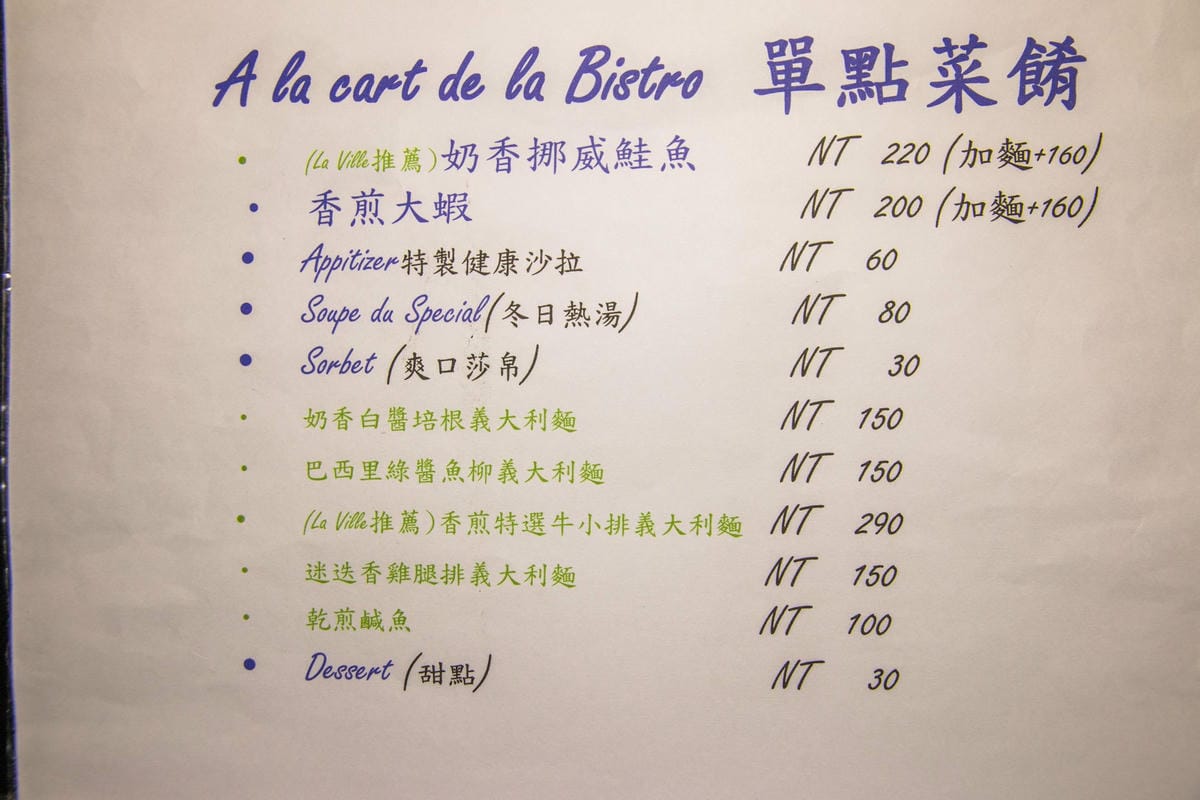 A la cart de la Bistro 單點菜餚
• (La Ville推薦)奶香挪威鮭魚 NT 220 (加麵+160)
• 香煎大蝦 NT 200 (加麵+160)
• Appitizer特製健康沙拉 NT 60
• Soupe du Special(冬日熱湯) NT 80
• Sorbet (爽口莎帛) NT 30
• 奶香白醬培根義大利麵 NT 150
• 巴西里綠醬魚柳義大利麵 NT 150
• (La Ville推薦)香煎特選牛小排義大利麵 NT 290
• 迷迭香雞腿排義大利麵 NT 150
• 乾煎鹹魚 NT 100
• Dessert (甜點) NT 30